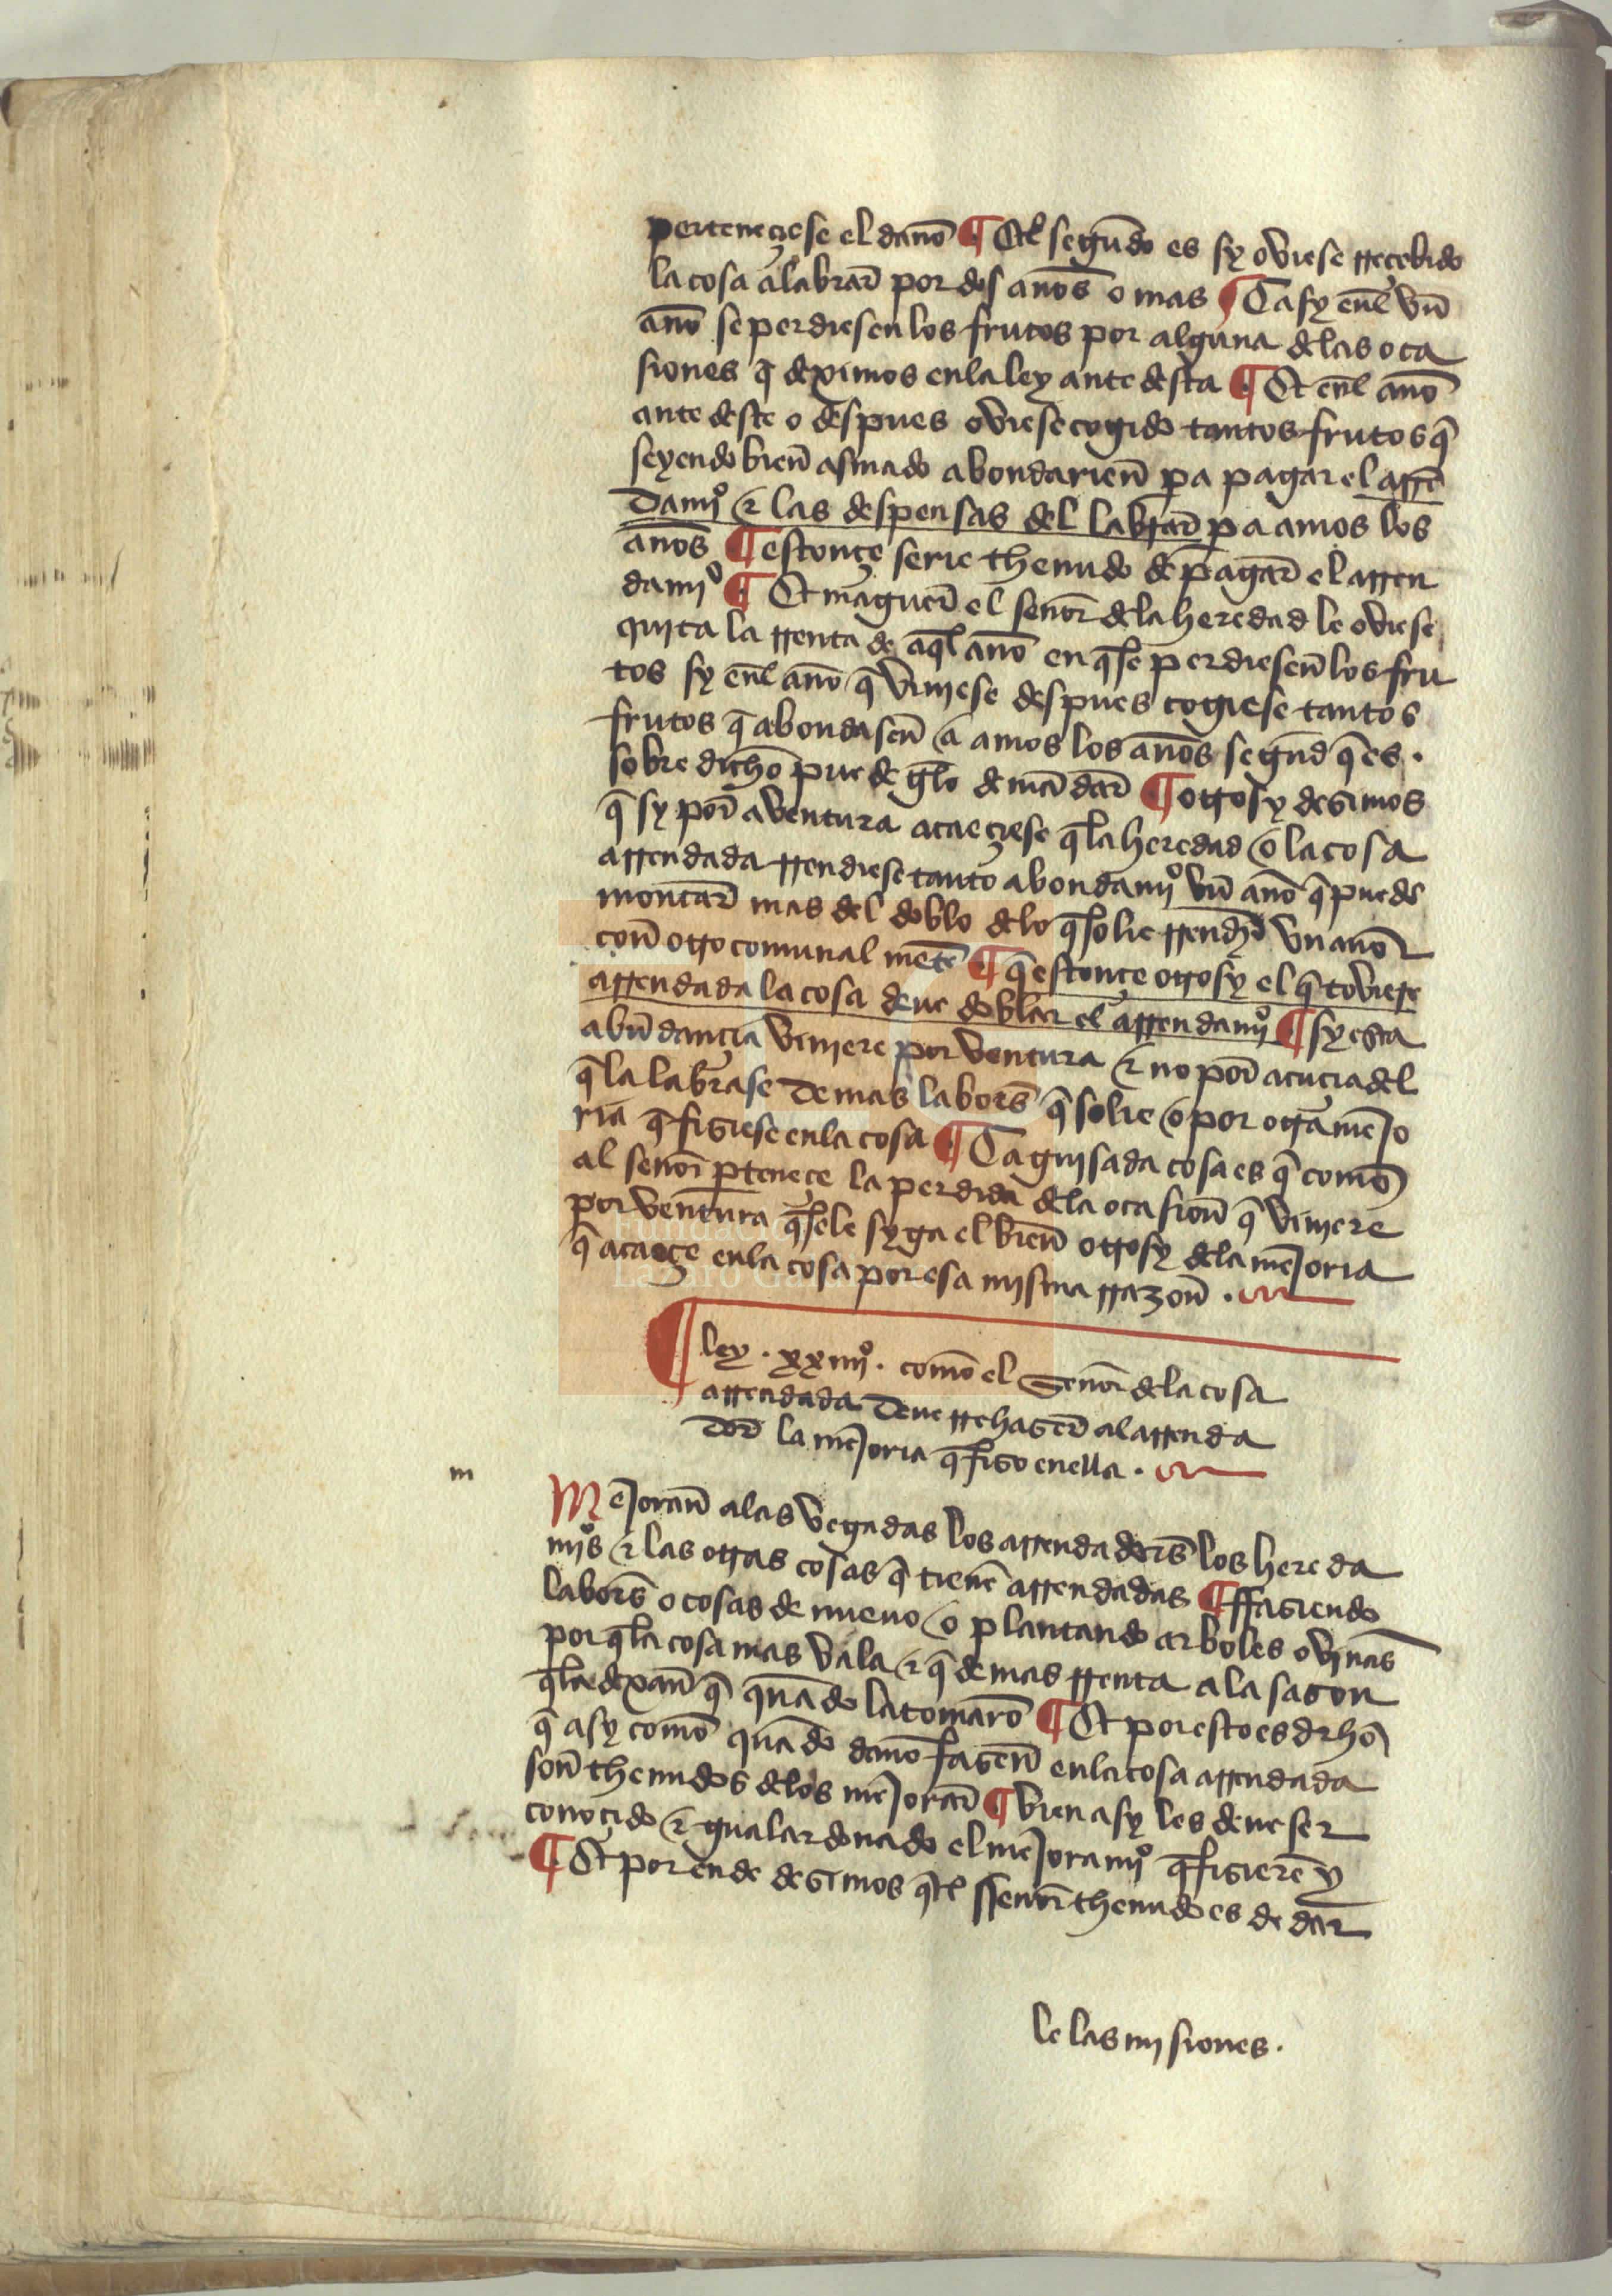 perteneçiese el daño ¶ Etl segũdo es sy oviese rreçebido
la cosa a labrar por dos años o mas ¶ Ca sy enl vn̄
año se perdiesen los frutos por alguna de las oca
siones q̄ deximos en la ley ante desta ¶ Et enl año
ante deste o despues oviese cogido tantos frutos q̄
seyendo bien̄ asmado abondarien̄ pa pagar el arrē
damjº & las despensas del labrar pa amos los
años ¶ estonçe serie thenudo de pagar el arren
damjº ¶ Et maguer el señor de la heredad le oviese
quita la rrenta de aql año en qse perdiesen̄ los fru
tos sy enl año q̄ vinjese despues cogiese tantos
frutos q̄ abondasen̄ a amos los años segũd q̄ es .
sobre dicho puede gelo demãdar ¶ otrosy desimos
q̄ sy por aventura acaeçiese qla heredad o la cosa
arrendada rrendiese tanto abondamjº vn̄ año q̄ puede
montar mas del doblo de lo qsolie rrender vn año
con̄ otro comunal mētē ¶ q̄ estonçe otrosy el q̄ toviese
arrendada la cosa deue doblar el arrendamjº ¶ sy esta
abũdançia vinjere por ventura & no por acuçia del
q̄ la labrase de mas labors̄ q̄ solie o por otra mējo
ria q̄ fisiese en la cosa ¶ Ca guisada cosa es q̄ como
al señor ptenece la perdida de la ocasion̄ q̄ vinjere
por ventura qsele syga el bien̄ otrosy de la mējoria
q̄ acaeçe en la cosa por esa misma rrazon̄ .
¶ ley . xxiiijº . como el Señor de la cosa
arrendada deue rrehaser al arrenda
dor la mējoria q̄ fiso en ella .
m
Mejoran̄ a las vegadas los arrendadors̄ los hereda
mjºs & las otras cosas q̄ tienē arrendadas ¶ ffasiendo
labors̄ o cosas de nueuo o plantando arboles o vinas
por qla cosa mas vala & q̄ de mas rrenta a la sason
qla dexan̄ q̄ quãdo la tomarō ¶ Et por esto es drho
q̄ asy como quãdo daño fasen̄ en la cosa arrendada
son̄ thenudos de los mējorar ¶ bien asy les deue ser
conoçido & gualardonado el mējoramjº q̄ fisierē y
¶ Et por ende desimos qel sseñor thenudo es de dar
le las misiones .